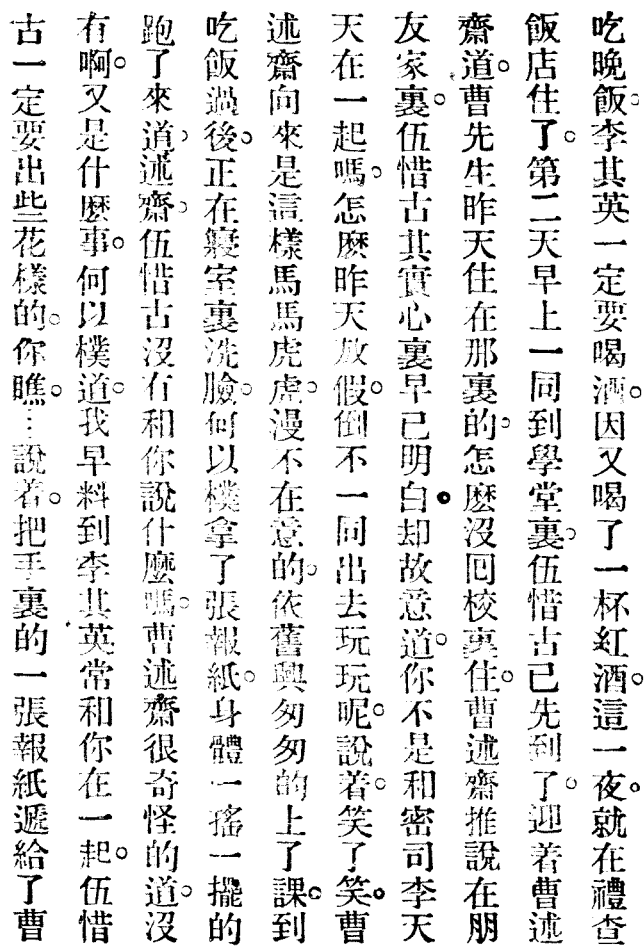 吃晚飯。李其英一定要喝酒。因又喝了一杯紅酒。這一夜。就在禮查
飯店住了。第二天早上一同到學堂裏。伍惜古已先到了。迎着曹述
齋道。曹先生昨天住在那裏的。怎麽沒囘校裏住。曹述齋推說在朋
友家裏。伍惜古其實心裏早已明白。却故意道。你不是和密司李天
天在一起嗎。怎麽昨天放假。倒不一同出去玩玩呢。說着笑了笑。曹
述齋向來是這樣馬馬虎虎。漫不在意的。依舊興匆匆的上了課。到
吃飯過後。正在寢室裏洗臉。何以樸拿了張報紙。身體一搖一擺的
跑了來道。述齋。伍惜古沒有和你說什麼嗎。曹述齋很奇怪的道。沒
有啊。又是什麽事。何以樸道。我早料到李其英常和你在一起。伍惜
古一定要出些花樣的。你瞧。…說着。把手裏的一張報紙遞給了曹